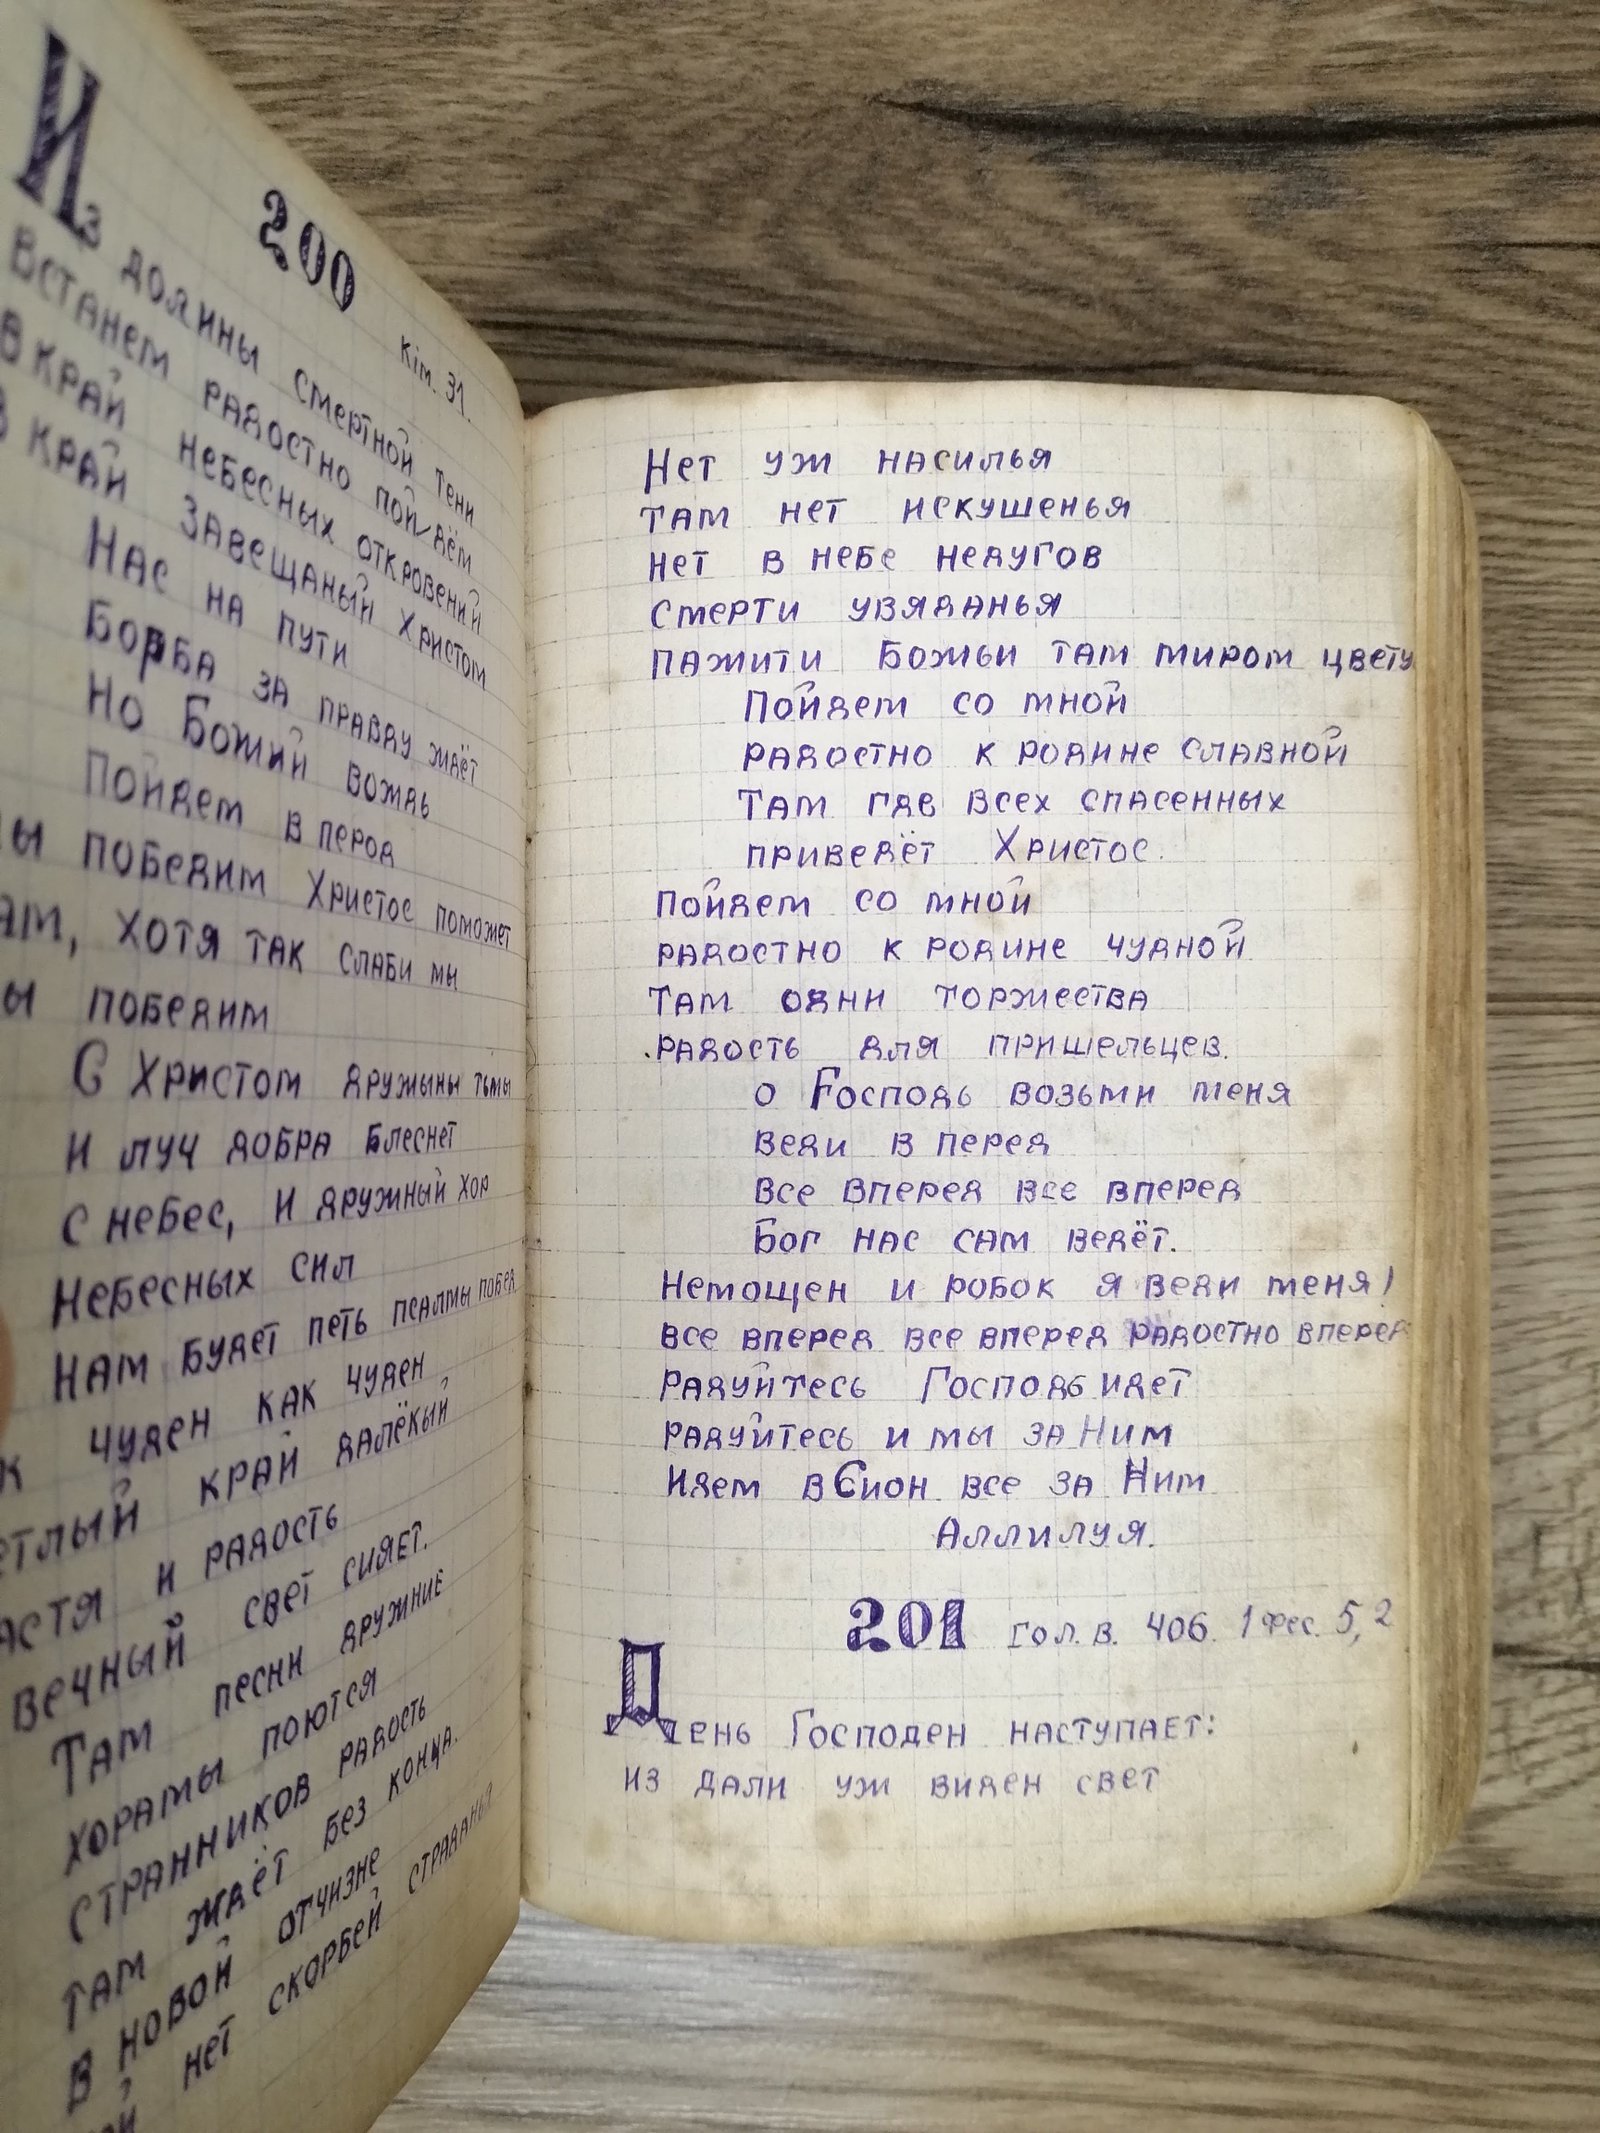 200
Кіт. 31.
Из долины смертной тени
Встанем радостно пойдём
В край небесных откровений
В край завещаный Христом
Нас на пути
Борьба за правду ждёт
Но Божий вождь
Пойдем в перод
победим Христос поможет
хотя так слаби мы
победим
С Христом дружыны тьмы
И луч добра блеснет
С небес, и дружный хор
Небесных сил
Нам будет петь псалмы побед
чуден как чуден
край далёкый
и радость
вечный свет сияет.
Там песни дружние
хорамы поются
странников радость
там ждёт без конца.
в новой отчизне
нет скорбей страданья
Нет уж насилья
там нет искушенья
нет в небе недугов
смерти увяданья
пажити Божьи там миром цвету
Пойдем со мной
радостно к родине славной
Там где всех спасенных
приведёт Христос.
пойдем со мной
радостно к родине чудной
Там одни торжества
радость для пришельцев.
о Господь возьми меня
веди в перед
все вперед все вперед
Бог нас сам ведёт.
Немощен и робок я веди меня!
все вперед все вперед радостно вперед
радуйтесь Господь идет
радуйтесь и мы за Ним
Идем в Сион все за Ним
Аллилуя.
201 гол. в. 406. 1 Фес. 5, 2
День Господен наступает:
из дали уж виден свет